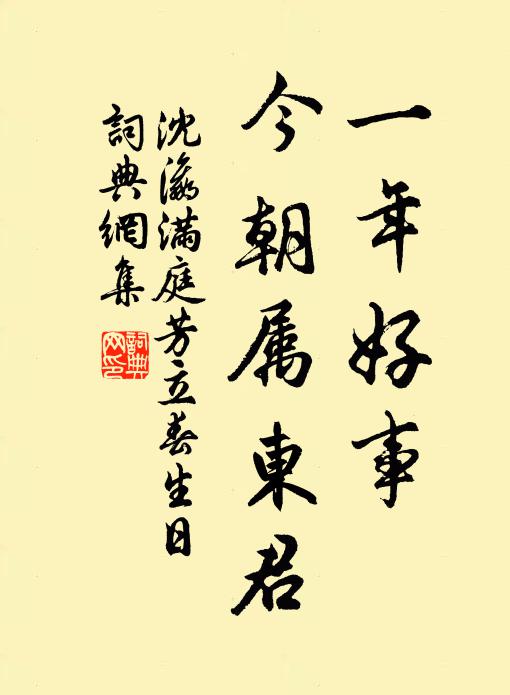 一年好事
今朝属東君
沈瀛满庭芳立春生日
詞典網集
詞典网印